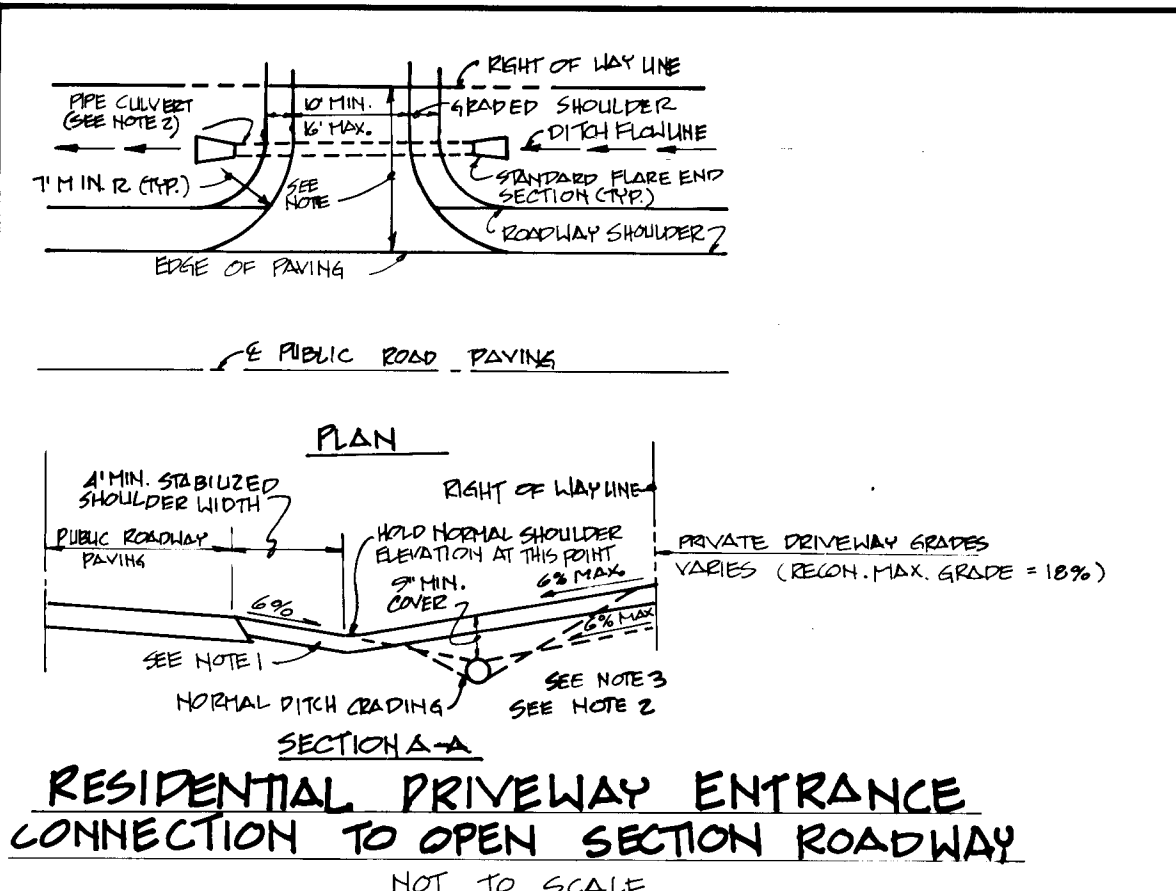 RIGHT OF WAY LINE
PIPE CULVERT
(SEE NOTE 2)
10' MIN.
16' MAX.
GRADED SHOULDER
DITCH FLOWLINE
7' MIN. R (TYP.)
SEE
NOTE
STANDARD FLARE END
SECTION (TYP.)
ROADWAY SHOULDER
EDGE OF PAVING
℄ PUBLIC ROAD PAVING
PLAN
4' MIN. STABILIZED
SHOULDER WIDTH
RIGHT OF WAY LINE
PUBLIC ROADWAY
PAVING
HOLD NORMAL SHOULDER
ELEVATION AT THIS POINT
PRIVATE DRIVEWAY GRADES
VARIES (RECON. MAX. GRADE = 18%)
9" MIN.
COVER
6% MAX.
6%
6% MAX
SEE NOTE 1
NORMAL DITCH GRADING
SEE NOTE 3
SEE NOTE 2
SECTION A-A
RESIDENTIAL DRIVEWAY ENTRANCE
CONNECTION TO OPEN SECTION ROADWAY
NOT TO SCALE